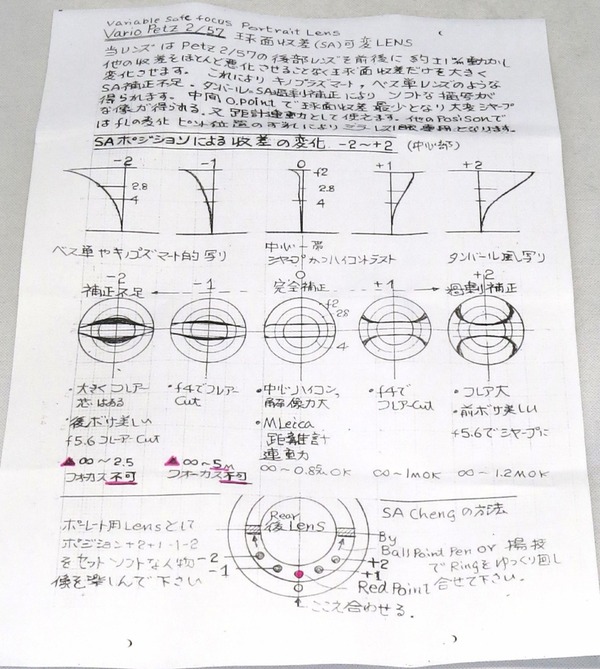 Variable Safe focus Portrait Lens
Vario Petz 2/57 球面収差(SA)可変LENS
当レンズはPetz 2/57の後部レンズを前後に約±1%動かし
他の収差をほとんど悪化させることなく球面収差だけを大きく
変化させます。これによりキノプラズマート,ベス単レンズのような
SA補正不足。タンバールのSA過剰補正によりソフトな描写が
得られます。中間O.pointで球面収差最少となり大変シャープ
な像が得られる。又距離連動として使えます。他のPosisonで
はflの変化 ピント位置のずれによりミラーレス専用となります。
SAポジションによる収差の変化 -2〜+2 (中心部)
-2 -1 0 +1 +2
f2
2.8
4
f2
2.8
4
ベス単やキノプズマート的写り
中心一部
シャープかつハイコントラスト
タンバール風写り
-2 0 +2
補正不足 -1 完全補正 +1 過剰補正
f2
2.8
4
・大きくフレアー
芯はある
・後ボケ美しい
f5.6フレアーCut
▲∞〜2.5
フォーカス不可
・f4でフレアー
Cut
▲∞〜5m
フォーカス不可
・中心ハイコン,
解像力大
・MLeica
距離計
連動力
∞〜0.8m OK
・f4で
フレアーCut
∞〜1m OK
・フレア大
・前ボケ美しい
・f5.6でシャープに
∞〜1.2m OK
ポートレート用Lensとして
ポジション+2+1-1-2
をセット ソフトな人物
像を楽しんで下さい
Rear
後Lens
-2
-1
+2
+1
Red Point
ここえ合わせる.
SA Chengの方法
By
Ball Point Pen or 楊枝
でRingをゆっくり回し
合せて下さい。